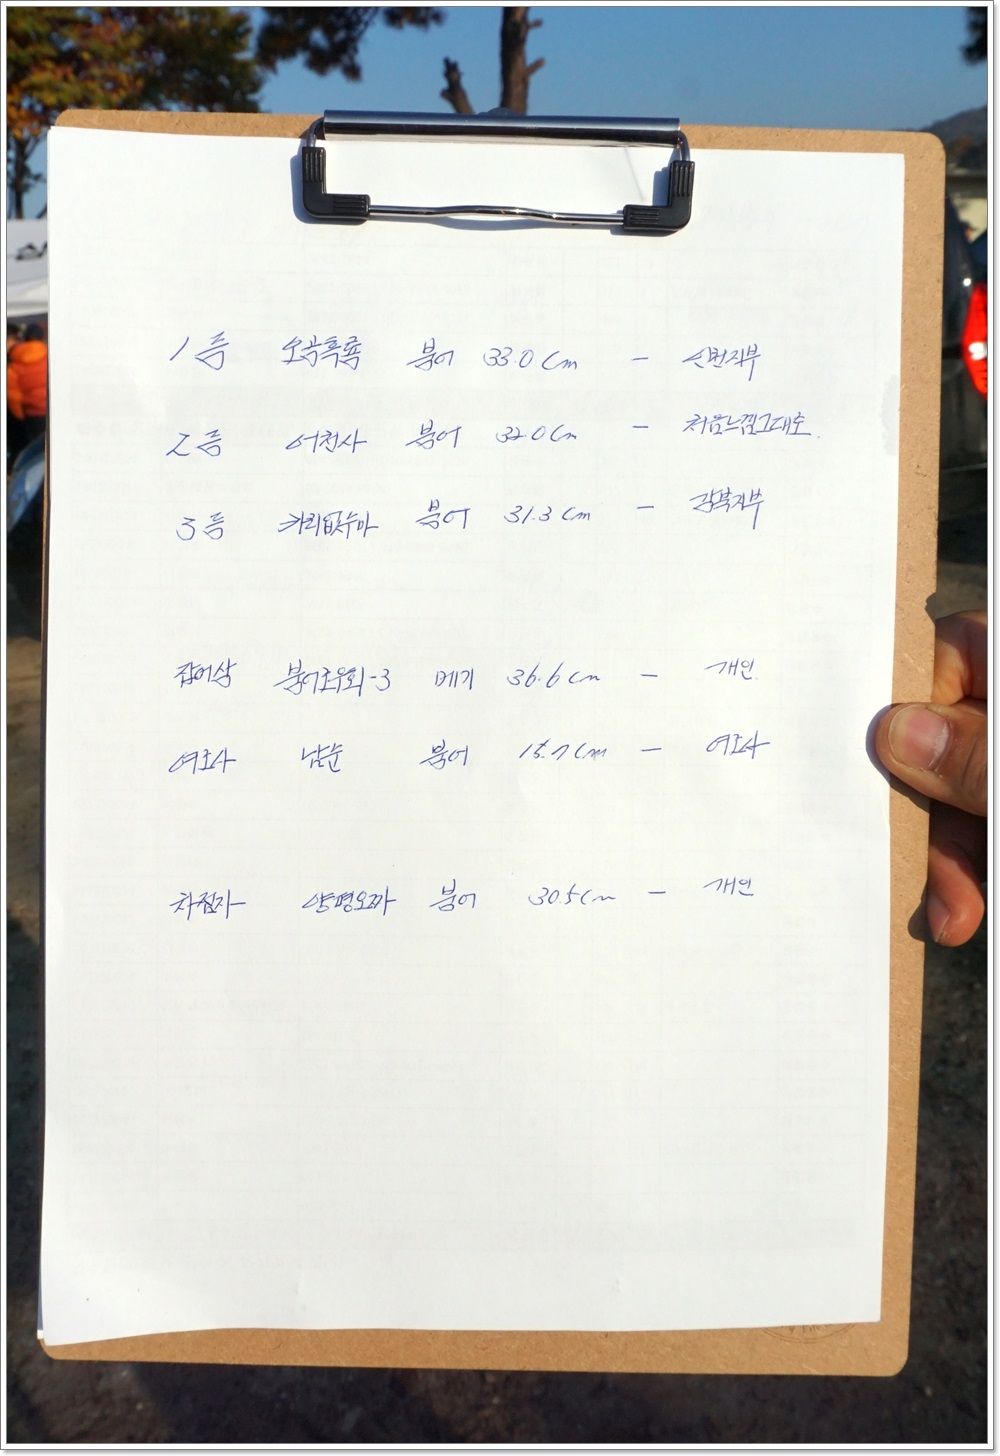 1등 오공흑룡 붕어 33.0cm - 신번지부
2등 어천사 붕어 32.0cm - 처음느낌그대로.
3등 카리없수마 붕어 31.3cm - 강북지부
잡어상 붕어조우회-3 메기 36.6cm - 개인
여조사 남순 붕어 15.7cm - 여조사
차점자 양평오짜 붕어 30.5cm - 개인